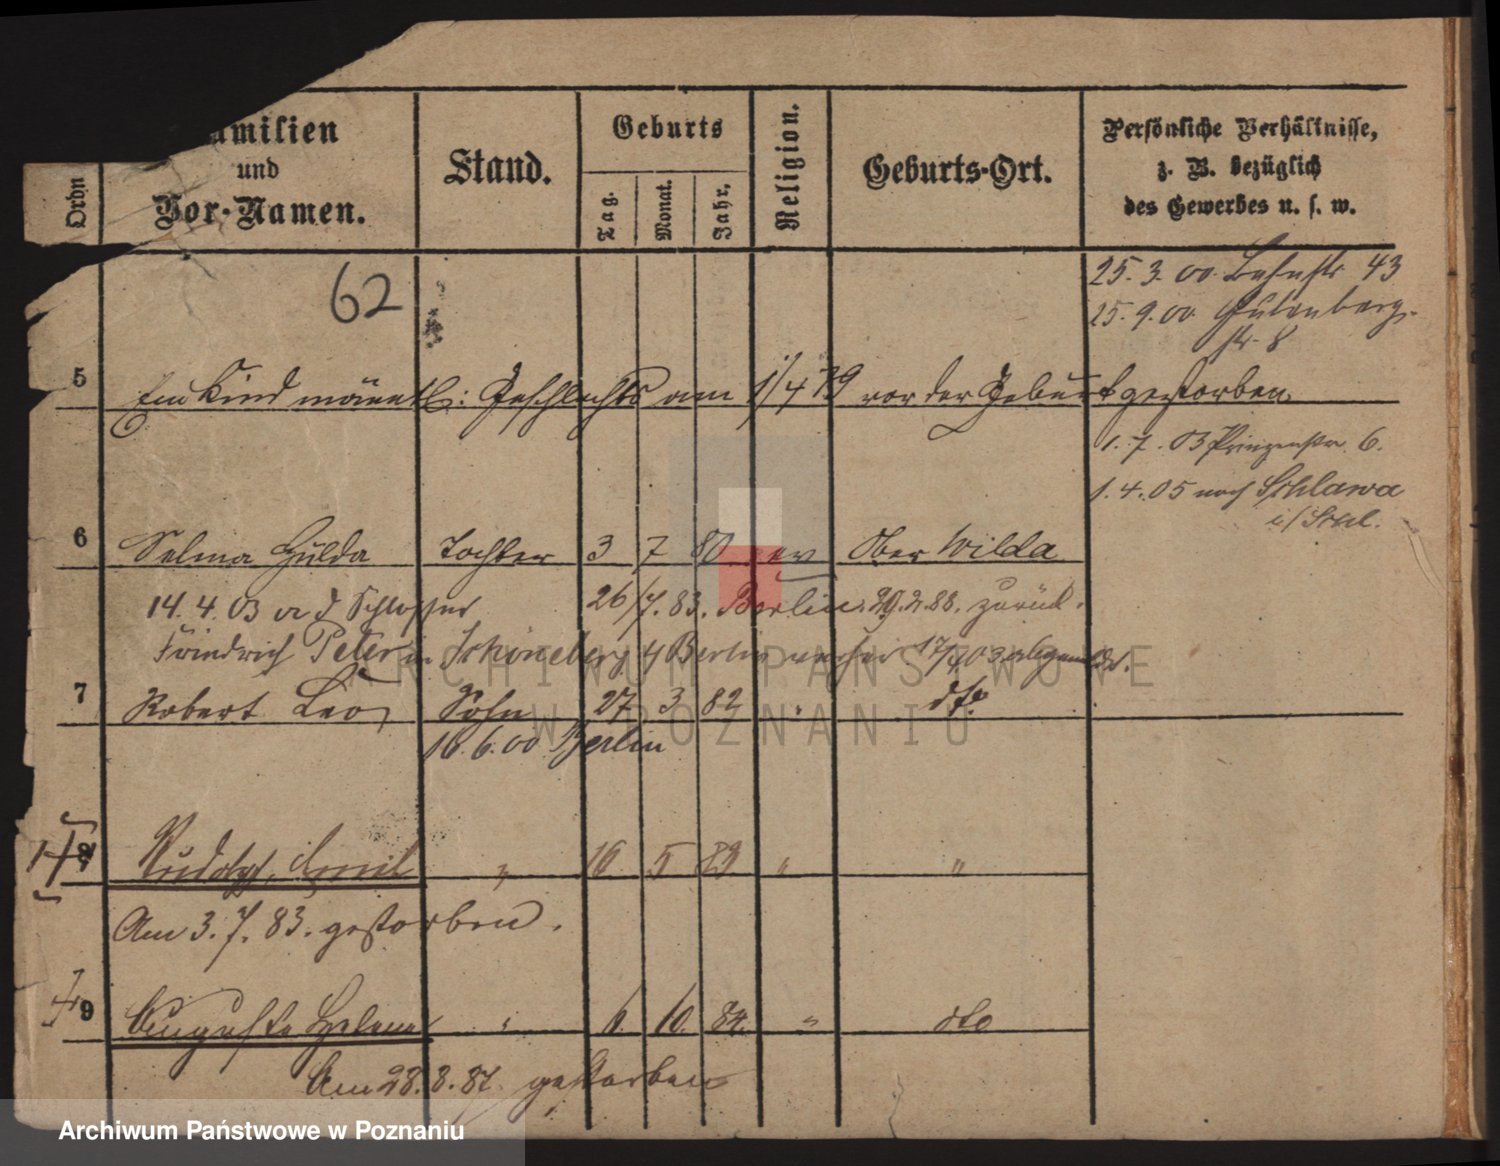 Ordn
amilien
und
Vor-Namen.
Stand.
Geburts
Tag.
Monat.
Jahr.
Religion.
Geburts-Ort.
Persönliche Verhältnisse,
z. B. bezüglich
des Gewerbes u. s. w.
62
25. 3. 00. Bahnstr 43
25. 9. 00 Gutenberg-
str. 8
5 Ein Kind männl: Geschlechts am 1/4 79 vor der Geburt gestorben.
1. 7. 03 Prinzenstr. 6.
1. 4. 05 nach Schlawa
i/Schl.
6 Selma Hulda Tochter 3 7 80 ev Ober Wilda
14. 4. 03 d Schlosser 26/7. 83. Berlin. 29.2.88. zurück.
Friedrich Peter in Schöneberg Berlin 17/4 03
7 Robert Leo Sohn 27 3 82 " dto
16. 6. 00 Berlin
8 Rudolph Emil " 16 5 83 " "
Am 3. 7. 83. gestorben.
9 Auguste Helene " 6. 10. 84. " dto
Am 28. 8. 87. gestorben
ARCHIWUM PAŃSTWOWE
W POZNANIU
Archiwum Państwowe w Poznaniu